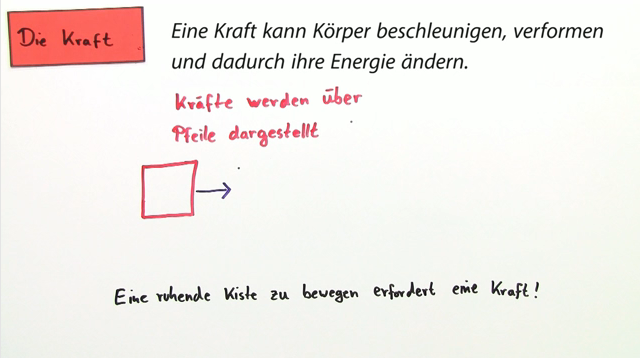 Die Kraft
Eine Kraft kann Körper beschleunigen, verformen
und dadurch ihre Energie ändern.
Kräfte werden über
Pfeile dargestellt
Eine ruhende Kiste zu bewegen erfordert eine Kraft!